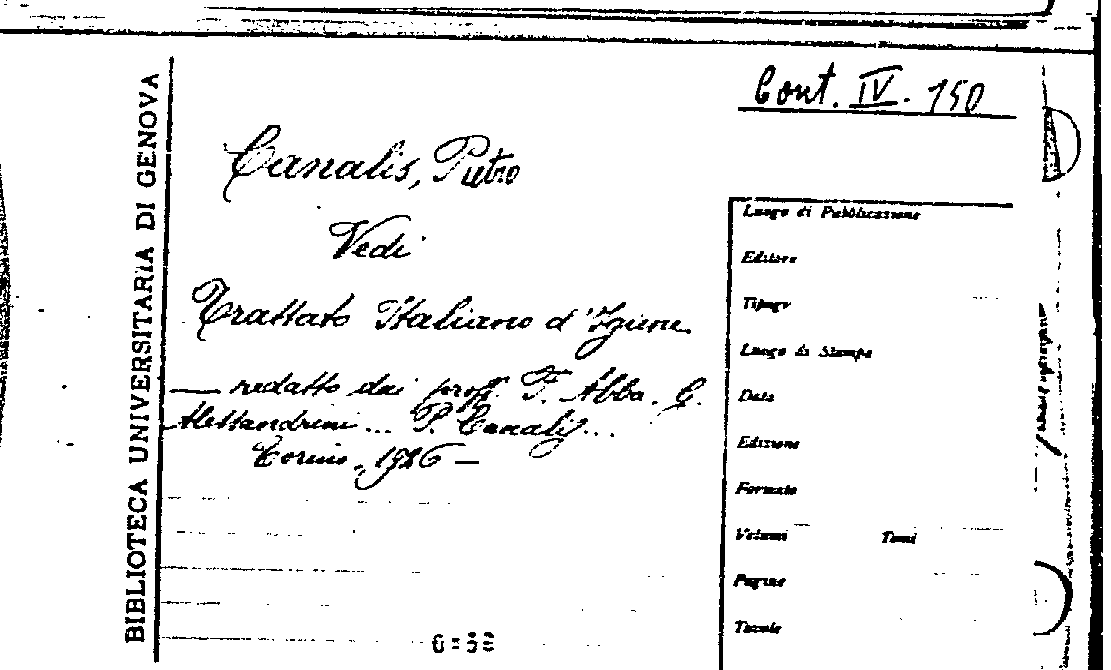 Cont. IV. 150
BIBLIOTECA UNIVERSITARIA DI GENOVA
Canalis, Pietro
Vedi
Trattato Italiano d'Igiene
— redatto dai proff. F. Abba. G.
Alessandrini ... P. Canalis ...
Torino, 1926 —
Luogo di Pubblicazione
Editore
Tipogr
Luogo di Stampa
Data
Edizione
Formato
Volumi Tomi
Pagine
Tavole